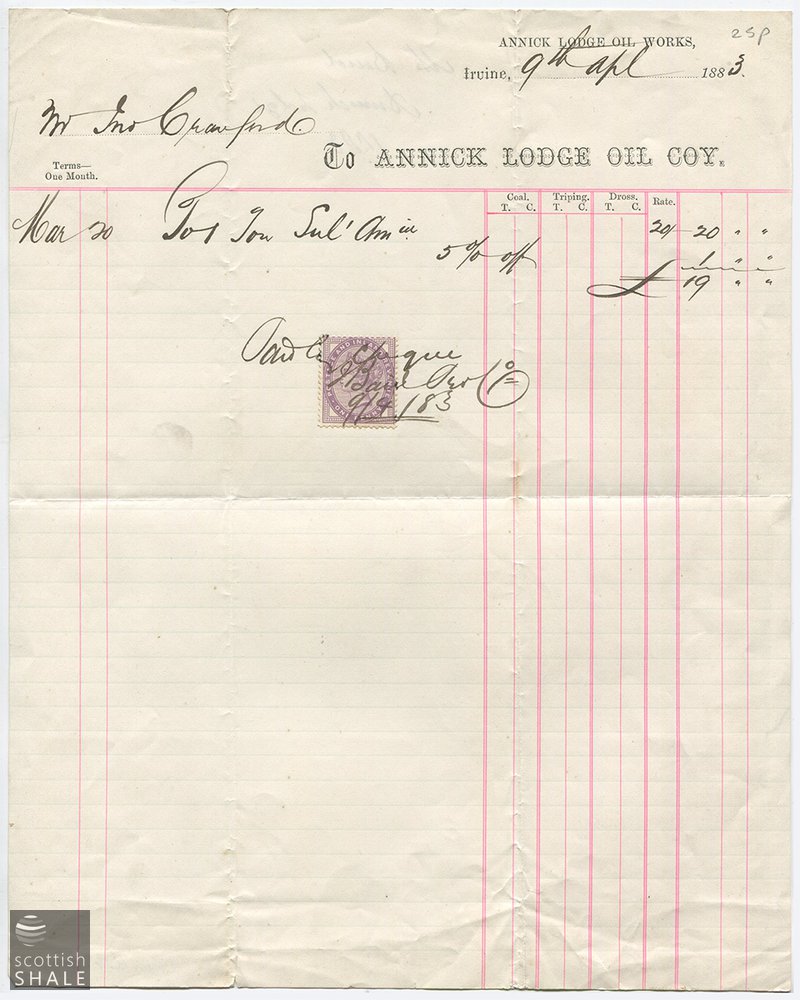 25p
ANNICK LODGE OIL WORKS,
Irvine, 9th Apl 1883.
Mr Jno Crawford
To ANNICK LODGE OIL COY.
Terms—
One Month.
Coal. Triping. Dross. Rate.
T. C. T. C. T. C.
Mar 20 To 1 Ton Sul' Amia 20/- 20 " "
5 % off 1 " "
£ 19 " "
Paid by Cheque
9/4/83
scottish
SHALE